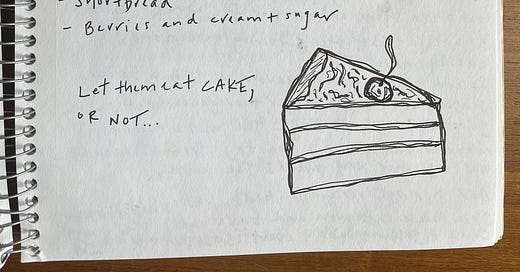 - Shortbread
- Berries and cream + sugar
Let them eat CAKE,
OR NOT...